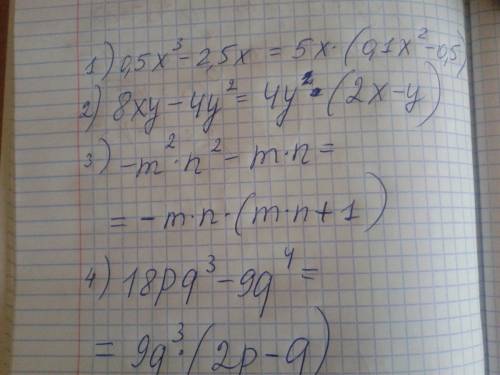 1) 0,5x³ - 2,5x = 5x · (0,1x² - 0,5)
2) 8xy - 4y² = 4y · (2x - y)
3) -m² · n² - m · n =
= -m · n · (m · n + 1)
4) 18pq³ - 9q⁴ =
= 9q³ · (2p - q)